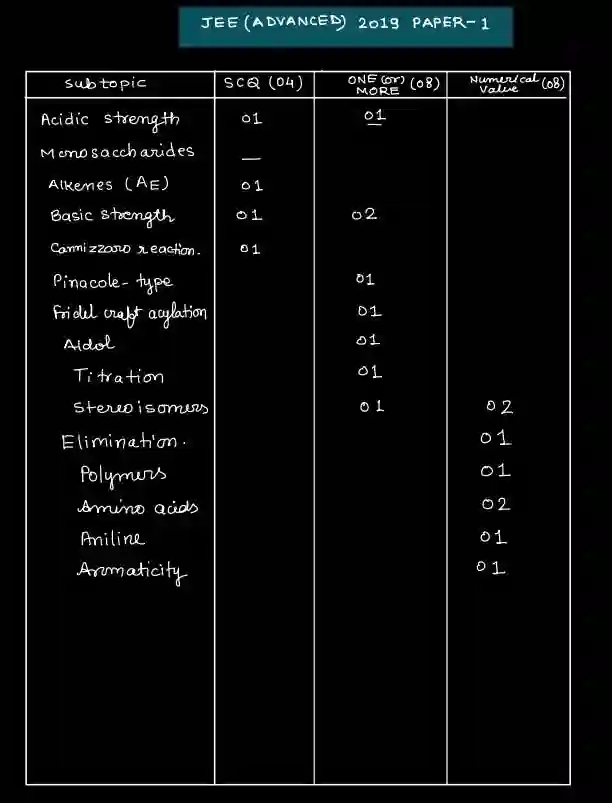 JEE (ADVANCED) 2019 PAPER-1
Subtopic SCQ (04) ONE (or) MORE (08) Numerical Value (08)
Acidic strength 01 01
Monosaccharides —
Alkenes (AE) 01
Basic strength 01 02
Cannizzaro reaction. 01
Pinacole-type 01
Fridel craft acylation 01
Aldol 01
Titration 01
Stereoisomers 01 02
Elimination. 01
Polymers 01
Amino acids 02
Aniline 01
Aromaticity 01